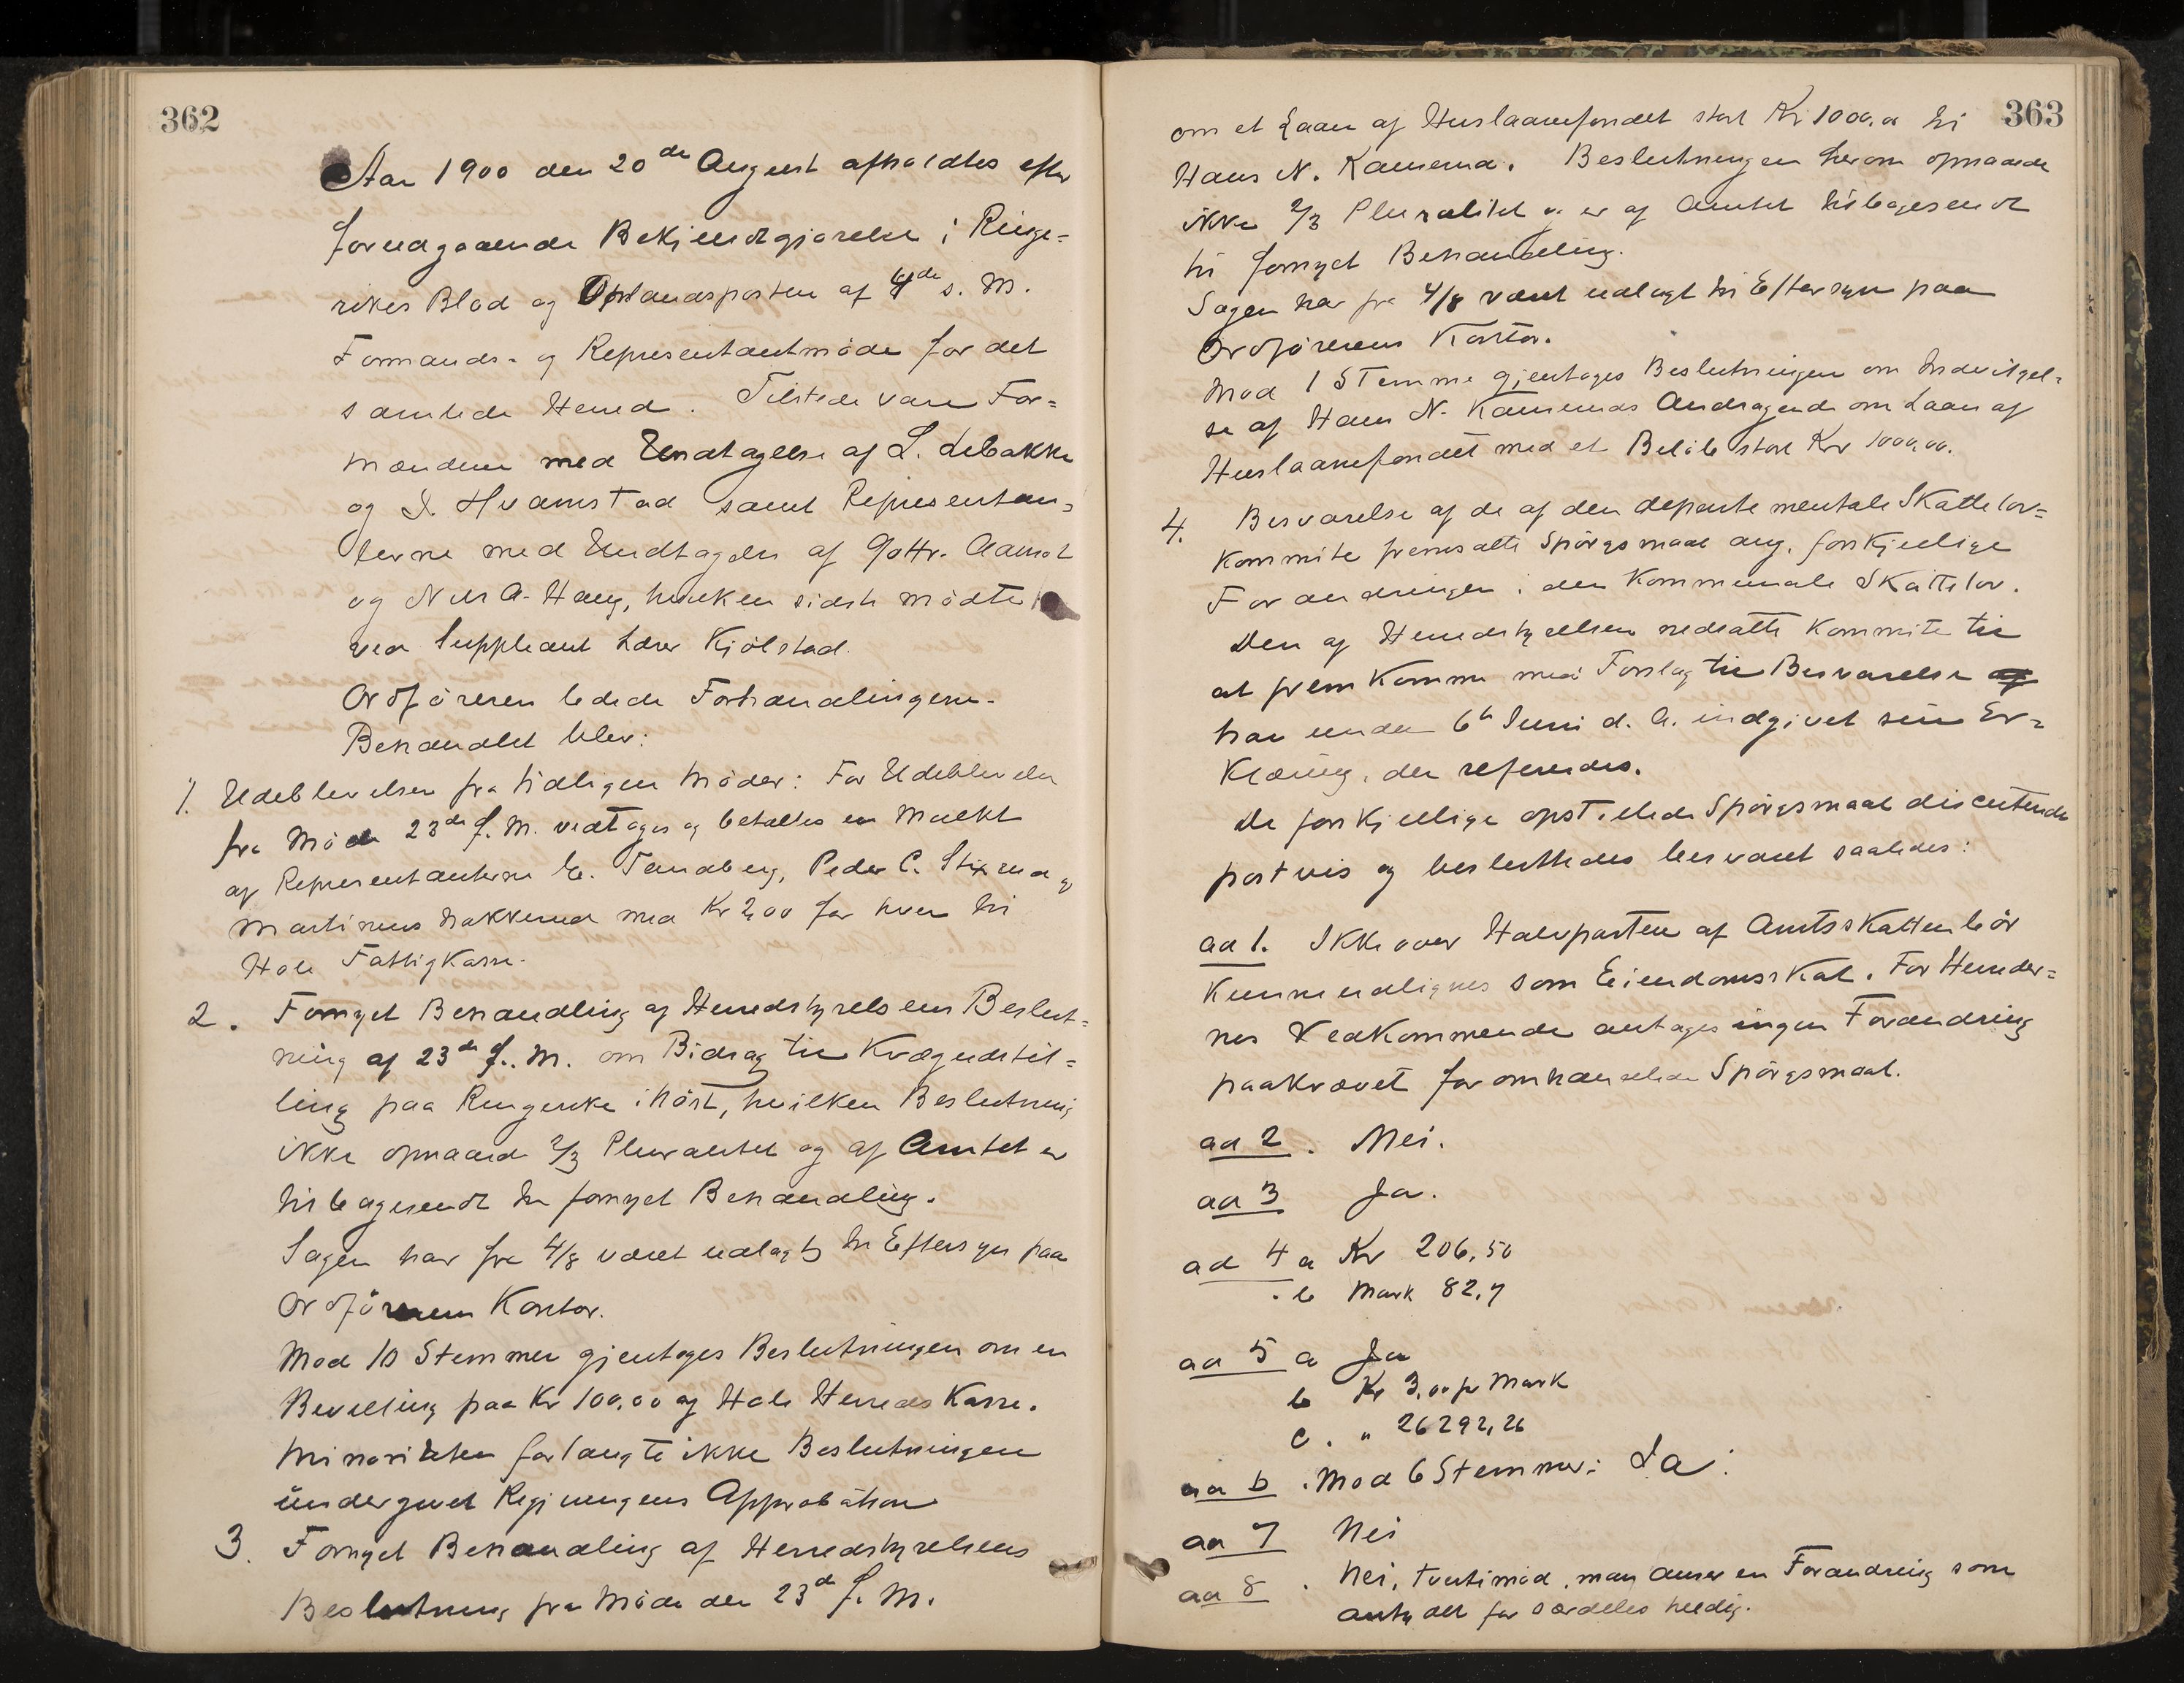 362
Aar 1900 den 20de August afholdtes efter
forudgaaende Bekjendtgjørelse i Ringe=
rikes Blad og Oplandsposten af 4de s. M.
Formands- og Repræsentantmøde for det
samlede Herred. Tilstede vare For=
mændene med Undtagelse af L. Libakke
og Hvamstad samt Repræsentan=
terne med Undtagelse af Gottr. Aamot
og Nils A. Haug, hvilken sidste mødte
ved Suppleant Lærer Kjølstad.
Ordføreren ledede Forhandlingerne.
Behandlet blev:
1. Udeblevelser fra tidligere Møder: For Udeblevelse
fra Møde 23de f. M. vedtages og betaltes en Mulkt
af Repræsentanterne E. Tandberg, Peder C. Stixrud og
Martinus Hakkerud med Kr 2,00 for hver til
Hole Fattigkasse.
2. Fornyet Behandling af Herredstyrelsens Beslut=
ning af 23de f. M. om Bidrag til Kvægudstil=
ling paa Ringerike i høst, hvilken Beslutning
ikke opnaaede 2/3 Pluralitet og af Amtet er
tilbagesendt til fornyet Behandling.
Sagen har fra 4/8 været udlagt til Eftersyn paa
Ordførerens Kontor.
Mod 10 Stemmer gjentages Beslutningen om en
Bevilling paa Kr 100,00 af Hole Herreds Kasse.
Minoriteten forlangte ikke Beslutningen
undergivet Regjeringens Approbation
3. Fornyet Behandling af Herredstyrelsens
Beslutning fra Møde den 23de f. M.
363
om et Laan af Huslaanefondet stort Kr 1000,00 til
Hans N. Kamerud. Beslutningen herom opnaaede
ikke 2/3 Pluralitet og er af Amtet tilbagesendt
til fornyet Behandling.
Sagen har fra 4/8 været udlagt til Eftersyn paa
Ordførerens Kontor.
Mod 1 Stemme gjentages Beslutningen om Indvilgel=
se af Hans N. Kameruds Andragende om Laan af
Huslaanefondet med et Beløb stort Kr 1000,00.
4. Besvarelse af de af den departementale Skattelov=
kommite fremsatte Spørgsmaal ang. forskjellige
Forandringer i den kommunale Skattelov.
Den af Herredstyrelsen nedsatte Kommite til
at fremkomme med Forslag til Besvarelse
har under 6te Juni d. A. indgivet sin Er=
klæring, der refereredes.
De forskjellige opstillede Spørgsmaal discuteredes
postvis og besluttedes besvaret saaledes:
ad 1. Ikke over Halvparten af Amtsskatten bør
kunne udlignes som Eiendomsskat. For Herreder=
nes Vedkommende antages ingen Forandring
paakrævet for omhandlede Spørgsmaal.
ad 2. Nei.
ad 3 Ja.
ad 4 a Kr 206,50
" b Mark 82,7
ad 5 a Ja
b Kr 3,00 pr Mark
c. " 26292,26
ad 6. Mod 6 Stemmer: Ja.
ad 7 Nei
ad 8. Nei, tvertimod, man anser en Forandring som
antydet for særdeles heldig.